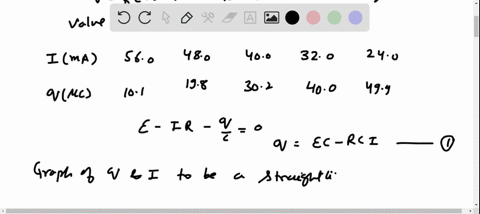 value
I (mA) 56.0 48.0 40.0 32.0 24.0
q (MC) 10.1 19.8 30.2 40.0 49.9
E - IR - q/c = 0
q = EC - RCI ——— ①
Graph of q & I to be a straightli